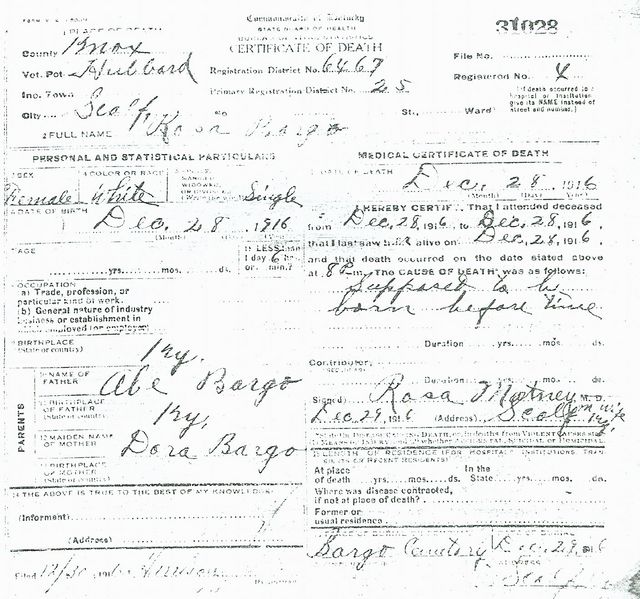 PLACE OF DEATH
Commonwealth of Kentucky
STATE BOARD OF HEALTH
BUREAU OF VITAL STATISTICS
CERTIFICATE OF DEATH
31028
County Knox
Vot. Pct. Hubbard
Inc. Town
City Scalf
Registration District No. 6467
Primary Registration District No. 25
File No.
Registered No. 4
No St., Ward
(If death occurred in a hospital or institution give its NAME instead of street and number.)
2 FULL NAME Rosa Bargo
PERSONAL AND STATISTICAL PARTICULARS
SEX
Female
COLOR OR RACE
White
SINGLE
WIDOWED
Single
DATE OF BIRTH
Dec. 28, 1916
AGE
yrs. mos. ds.
If LESS than 1 day 6 hrs. or min.?
OCCUPATION
a) Trade, profession, or particular kind of work.
b) General nature of industry business or establishment in which employed (or employer)
BIRTHPLACE
(State or country)
Ky.
PARENTS
NAME OF FATHER
Abe Bargo
BIRTHPLACE OF FATHER
(State or country)
Ky.
MAIDEN NAME OF MOTHER
Dora Bargo
BIRTHPLACE OF MOTHER
(State or country)
THE ABOVE IS TRUE TO THE BEST OF MY KNOWLEDGE
(Informant)
(Address)
Filed 12/30 191
MEDICAL CERTIFICATE OF DEATH
DATE OF DEATH
Dec. 28 1916
(Month) (Day) (Year)
I HEREBY CERTIFY, That I attended deceased
from Dec. 28, 1916, to Dec. 28, 1916,
that I last saw her alive on Dec. 28, 1916,
and that death occurred on the date stated above
at 8 P.m. The CAUSE OF DEATH was as follows:
Supposed to be
born before time
Duration yrs. mos. ds.
Contributory
Duration yrs. mos. ds.
(Signed) Rosa M. D.
Dec 29, 1916 (Address) Scalf Ky.
LENGTH OF RESIDENCE (FOR HOSPITALS, INSTITUTIONS, TRANSIENTS OR RECENT RESIDENTS)
At place of death yrs. mos. ds. In the State yrs. mos. ds.
Where was disease contracted, if not at place of death?
Former or usual residence
Bargo Cemetery Dec. 29, 1916
ADDRESS